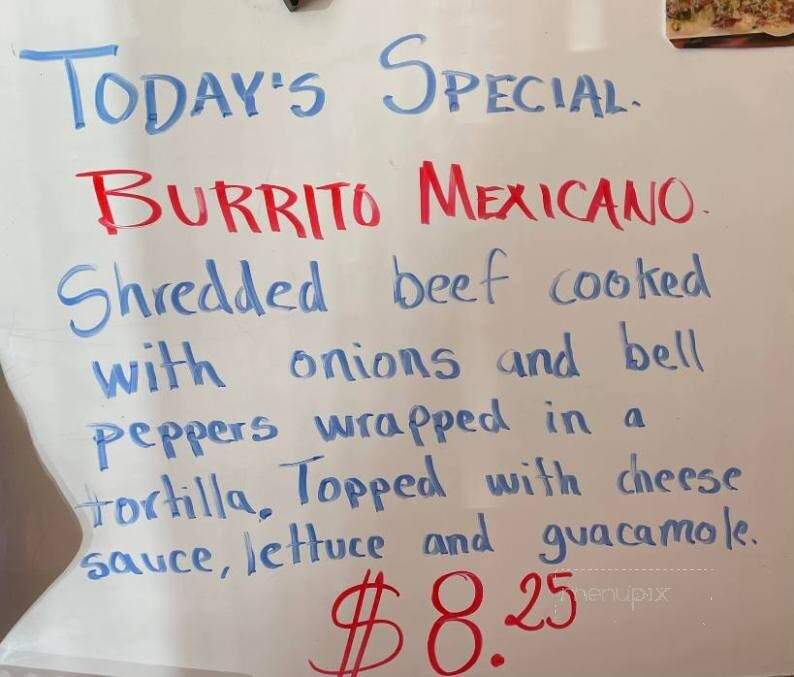 TODAY'S SPECIAL.
BURRITO MEXICANO.
Shredded beef cooked
with onions and bell
peppers wrapped in a
tortilla. Topped with cheese
sauce, lettuce and guacamole.
$8.25
menupix